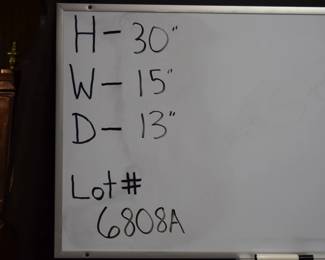 H- 30"
W- 15"
D- 13"
Lot#
6808A